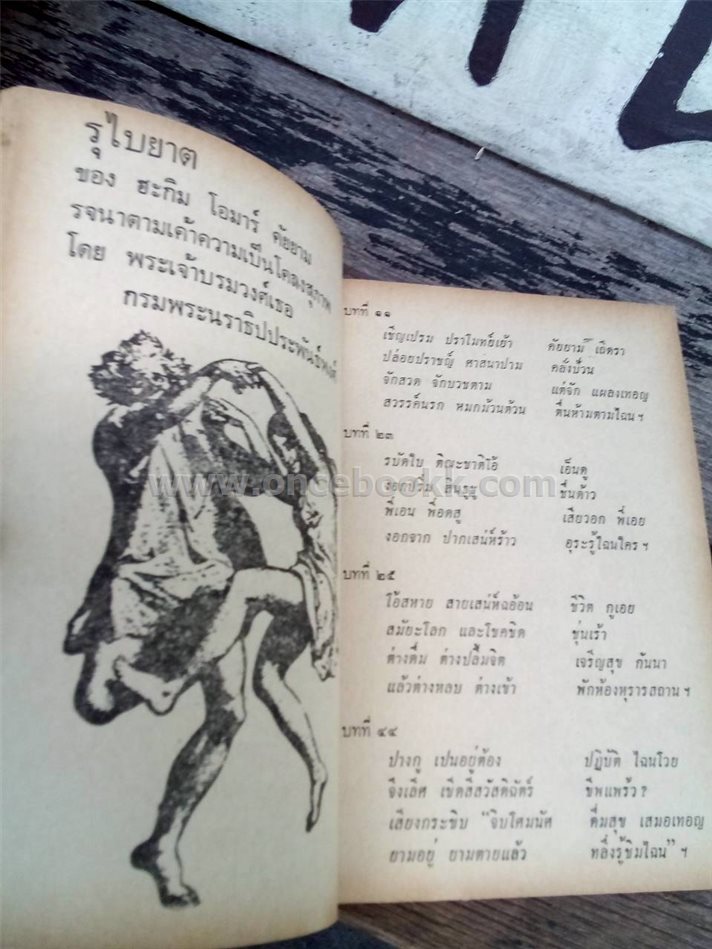 รุไบยาต
ของ ฮะกิม โอมาร์ คัยยาม
รจนาตามเค้าความเป็นโคลงสุภาพ
โดย พระเจ้าบรมวงศ์เธอ
กรมพระนราธิปประพันธ์พงศ์
บทที่ ๑๑
เชิญเปรม ปราโมทย์เย้า คัยยาม เถิดรา
ปล่อยปราชญ์ ศาสนาปาม คลั่งป้วน
จักสวด จักบวชตาม แต่จัก แผลงเทอญ
สวรรค์นรก หมกม้วนด้วน ตื่นห้ามตามไฉน ฯ
บทที่ ๒๓
รบัดใบ ติณะชาติโอ้ เอ็นดู
งอกปริ่ม สินธูชู ชื่นด้าว
พี่เอน พี่อดสู เสียวอก พี่เอย
งอกจาก ปากเสน่ห์ร้าว อุระรู้ไฉนใคร ฯ
บทที่ ๒๕
โอ้สหาย สายเสน่ห์ฉอ้อน ชีวิต กูเอย
สมัยะโลก และโชคชิด ชุ่นเร้า
ต่างดื่ม ต่างปลื้มจิต เจริญสุข กันนา
แล้วต่างหลบ ต่างเข้า พักห้องทุรารสถาน ฯ
บทที่ ๔๔
ปางกู เปนอยู่ต้อง ปฏิบัติ ไฉนโวย
จึงเลิศ เชิดสี่สวัสดิฉัตร์ ชีพแพร้ว ?
เสียงกระซิบ "จิบใศมนัศ ดื่มสุข เสมอเทอญ
ยามอยู่ ยามตายแล้ว หลึ่งรู้ชิมไฉน" ฯ
www.oncebookk.com